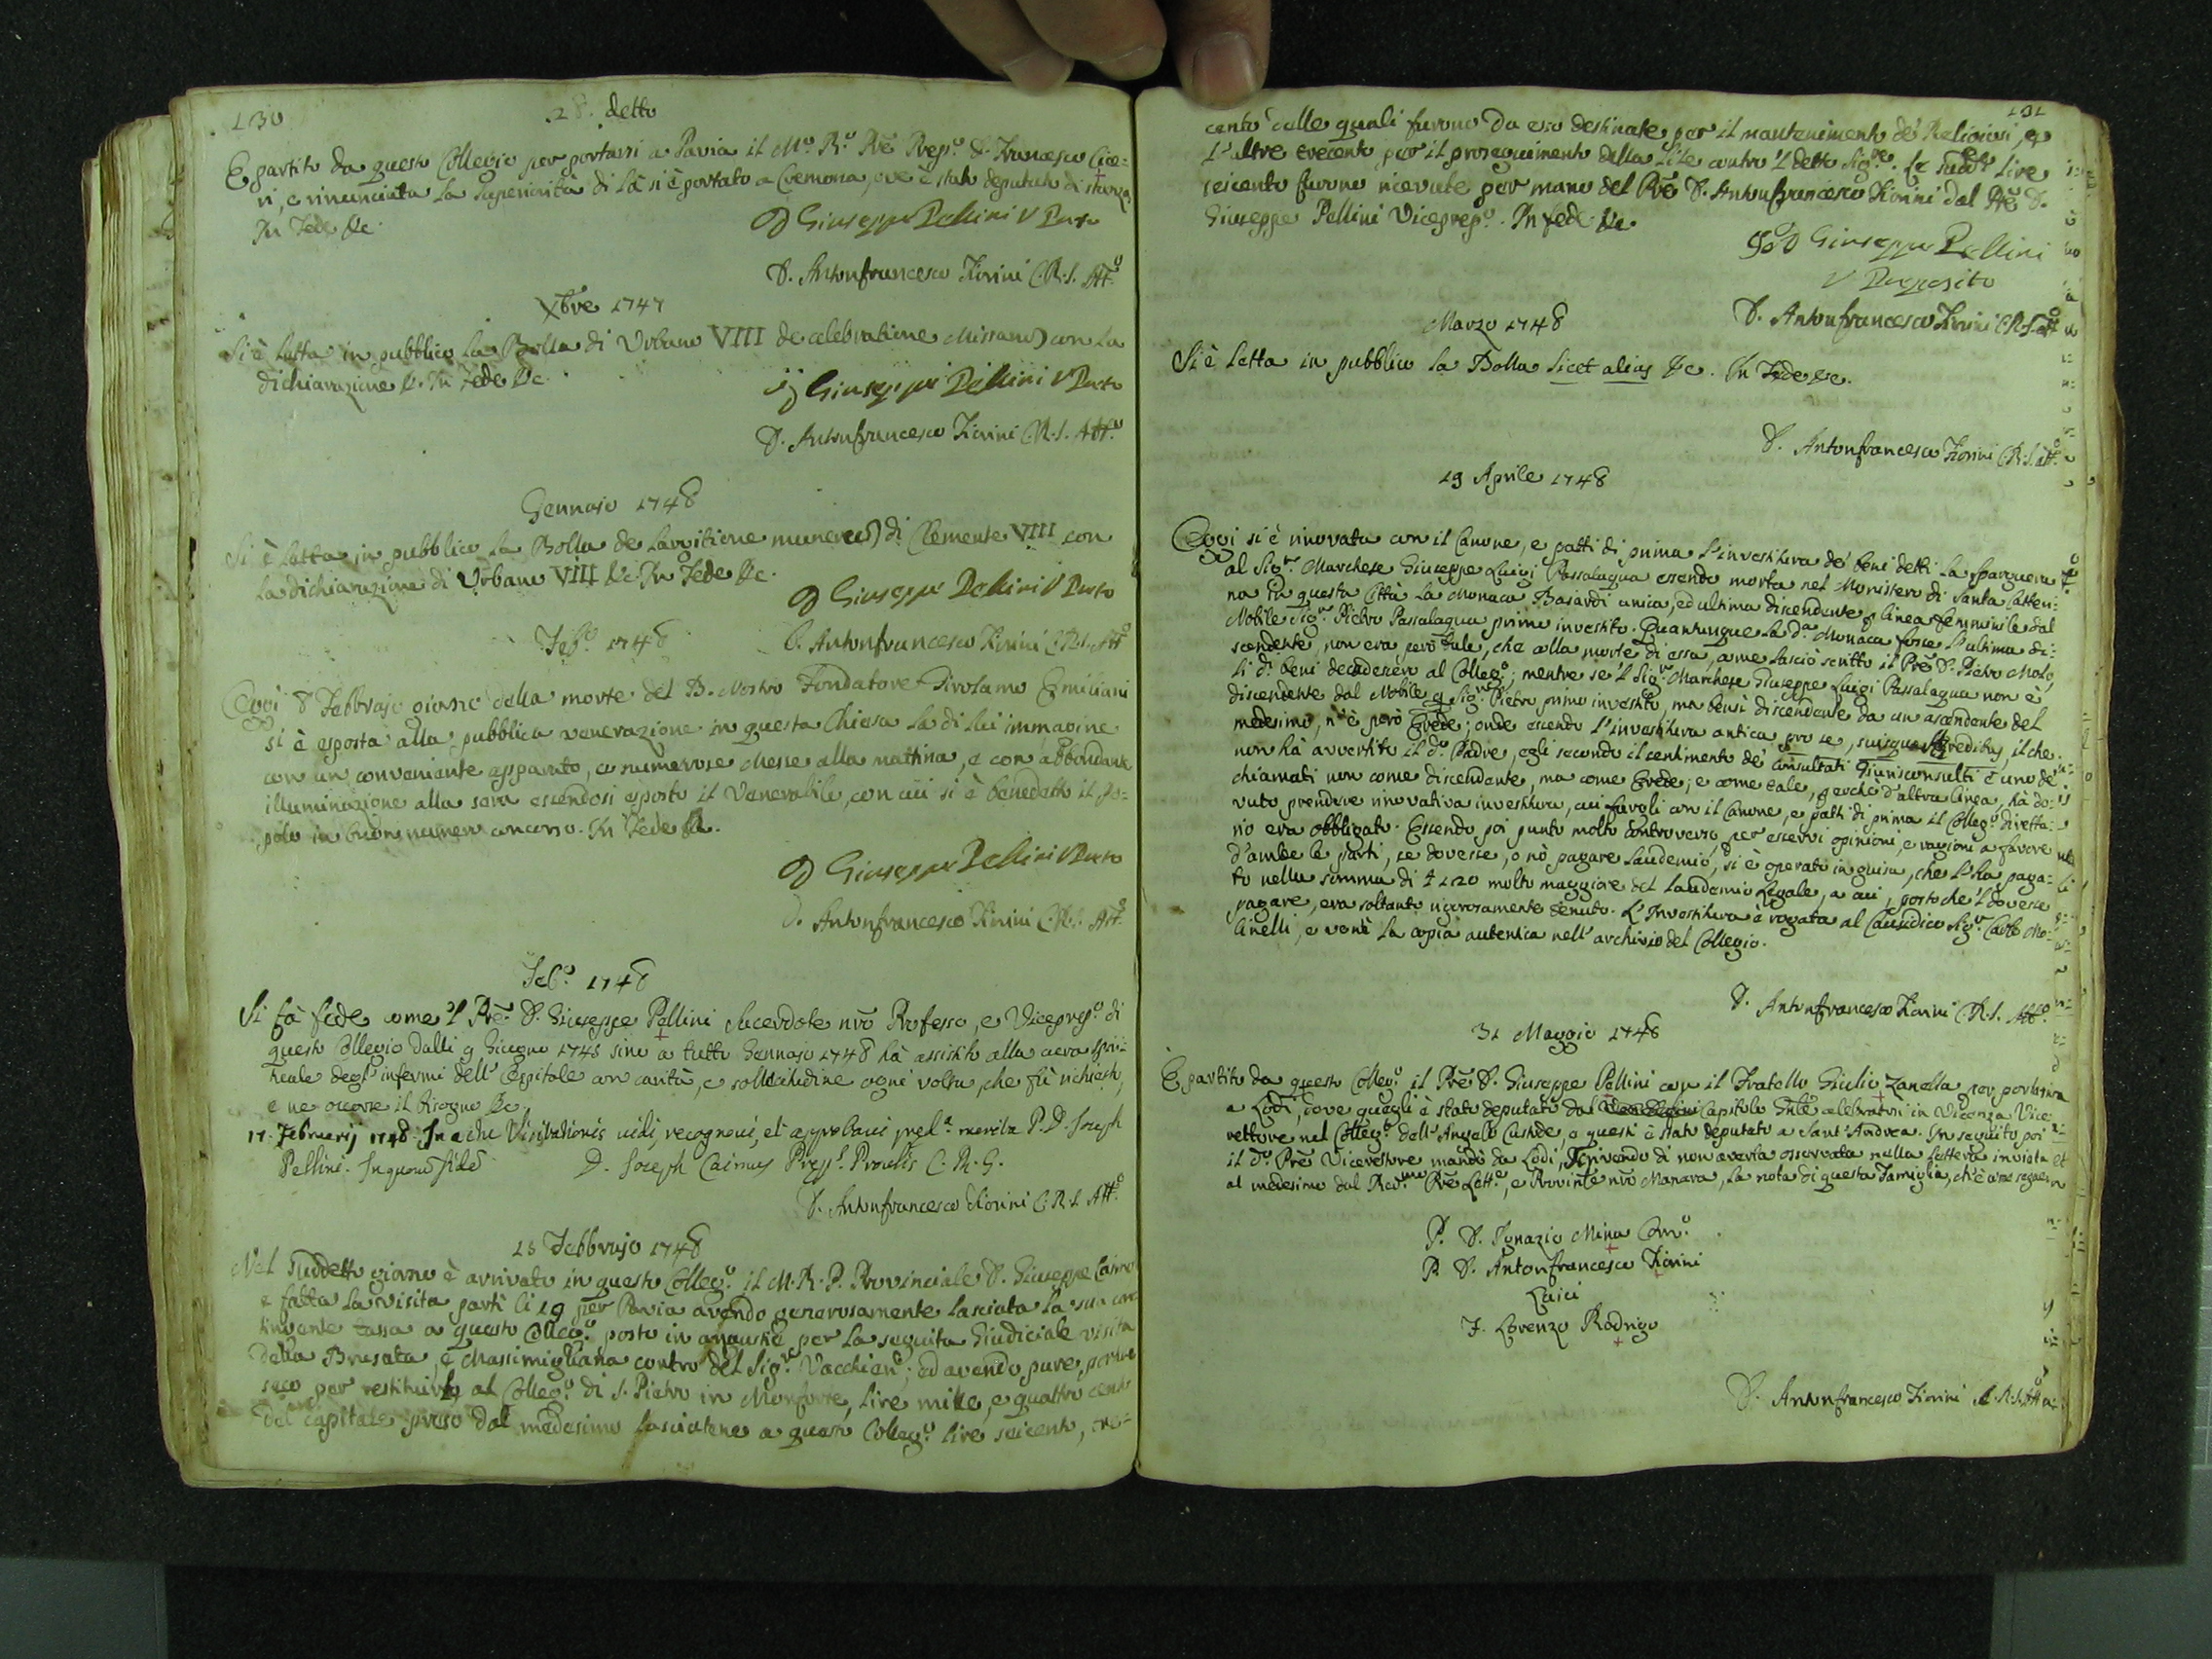 130
28. detto
È partito da questo Collegio per portarsi a Pavia il M.o R.o Prē Prep.o D. Francesco Cice=
ri, e rinunciata la Superiorità di là si è portato a Cremona, ove è stato deputato di stanza.
In Fede &c.
D Giuseppe Pellini V Posto
D. Antonfrancesco Fiorini C.R.S. Att.o
Xbre 1747
Si è letta in pubblico la Bolla di Urbano VIII de celebratione Missarum con la
dichiarazione &c. In Fede &c.
D Giuseppe Pellini V Posto
D. Antonfrancesco Fiorini C.R.S. Att.o
Gennajo 1748
Si è letta in pubblico la Bolla de largitione munerum di Clemente VIII con
la dichiarazione di Urbano VIII &c. In Fede &c.
D Giuseppe Pellini V Posto
D. Antonfrancesco Fiorini C.R.S. Att.o
Feb.o 1748
Oggi 8 Febbrajo giorno della morte del B. Nostro Fondatore Girolamo Emiliani
si è esposta alla pubblica venerazione in questa Chiesa la di lui immagine
con un conveniente apparato, e numerose Messe alla mattina, e con abbondante
illuminazione alla sera essendosi esposto il Venerabile, con cui si è benedetto il po=
polo in buon numero concorso. In Fede &c.
D Giuseppe Pellini V Posto
D. Antonfrancesco Fiorini C.R.S. Att.o
Feb.o 1748
Si fà fede come 'l Prē D. Giuseppe Pellini Sacerdote nrō Professo, e Viceprep.o di
questo Collegio dalli 9 Giugno 1745 sino a tutto Gennajo 1748 hà assistito alla cura spiri=
tuale degl' infermi dell' Ospitale con carità, e sollecitudine ogni volta, che fù richiesto,
e ne occorse il bisogno &c.
17. Februarij 1748. In actu Visitationis vidi, recognovi, et approbavi pred.a merita P. D. Joseph
Pellini. In quorum fidē
D. Joseph Caimus Prep.s Provlis C. R. S.
D. Antonfrancesco Fiorini C.R.S. Att.o
15 Febbrajo 1748
Nel suddetto giorno è arrivato in questo Colleg.o il M. R. P. Provinciale D. Giuseppe Caimo
e fatta la visita partì li 19 per Pavia avendo generosamente lasciata la sua con=
tingente tassa a questo Colleg.o posto in angustie per la seguita Giudiciale visita
della Brusata, e Massimigliana contro del Sig.re Vacchieri; ed avendo pure portate
seco per restituirle al Colleg.o di S. Pietro in Monforte, lire mille, e quattro cento
del capitale preso dal medesimo lasciatene a questo Colleg.o lire seicento, tre=
131
cento dalle quali furono da esso destinate per il mantenimento de' Religiosi, e
l'altre trecento per il proseguimento della lite contro 'l detto Sig.re. Le sudd.e lire
seicento furono ricevute per mano del Prē D. Antonfrancesco Fiorini dal Prē D.
Giuseppe Pellini Viceprep.o. In fede &c.
D Giuseppe Pellini
V Preposito
D. Antonfrancesco Fiorini C.R.S. Att.o
Marzo 1748
Si è letta in pubblico la Bolla licet alias &c. In Fede &c.
D. Antonfrancesco Fiorini C.R.S. Att.o
19 Aprile 1748
Oggi si è rinovata con il Canone, e patti di prima l'investitura de' beni detti la
al Sig.r Marchese Giuseppe Luigi Passalaqua essendo morta nel Monistero di Santa Catteri=
na in questa Città la Monaca Basardi unica, ed ultima discendente p linea femminile dal
Nobile Sig.r Pietro Passalaqua primo investito. Quantunque la d.a Monaca fosse l'ultima di=
scendente, non era però tale, che alla morte di essa, come lasciò scritto il Prē D. Pietro
li d.i beni decadessero al Colleg.o; mentre se 'l Sig.r Marchese Giuseppe Luigi Passalaqua non è
discendente dal Nobile q Sig.r Pietro primo investito, ma bensì discendente da un ascendente del
medesimo, n'è però Erede; onde essendo l'investitura antica pro se, suisque Hæreditus, il che
non hà avvertito il d.o Padre, egli secondo il sentimento de' Consultati Giurisconsulti è uno de'
chiamati non come discendente, ma come Erede; e come tale, perchè d'altra linea, hà do=
vuto prendere rinovativa investitura, cui fargli con il Canone, e patti di prima il Colleg.o diretta=
rio era obbligato. Essendo poi punto molto controverso, per esservi opinioni, e ragioni a favore
d'ambe le parti, se dovesse, o nò pagare laudemio, si è operato in guisa, che l'ha paga=
to nella somma di 120 molto maggiore del laudemio legale, a cui, posto che 'l dovesse
pagare, era soltanto rigorosamente tenuto. L'Investitura è rogata al Causidico Sig.r Carlo Mo=
linelli, e vene la copia autentica nell'archivio del Collegio.
D. Antonfrancesco Fiorini C.R.S. Att.o
31 Maggio 1748
È partito da questo Colleg.o il Prē D. Giuseppe Pellini con il Fratello Giulio Zanella per portarsi
a Lodi, dove quegli è stato deputato dal Capitolo Gnle celebratosi in Vicenza Vice
rettore nel Colleg.o dell'Angelo Custode, e questi è stato deputato a Sant'Andrea. In seguito poi
il d.o Prē Vicerettore mandò da Lodi, scrivendo di non averla osservata nella lettera inviata
al medesimo dal Rev.mo Prē Lett.e, e Provinle nrō Manara, la nota di questa Famiglia, ch'è come segue
P. D. Ignazio Mina
P. D. Antonfrancesco Fiorini
Laici
F. Lorenzo Rodrigo
D. Antonfrancesco Fiorini C.R.S. Att.o